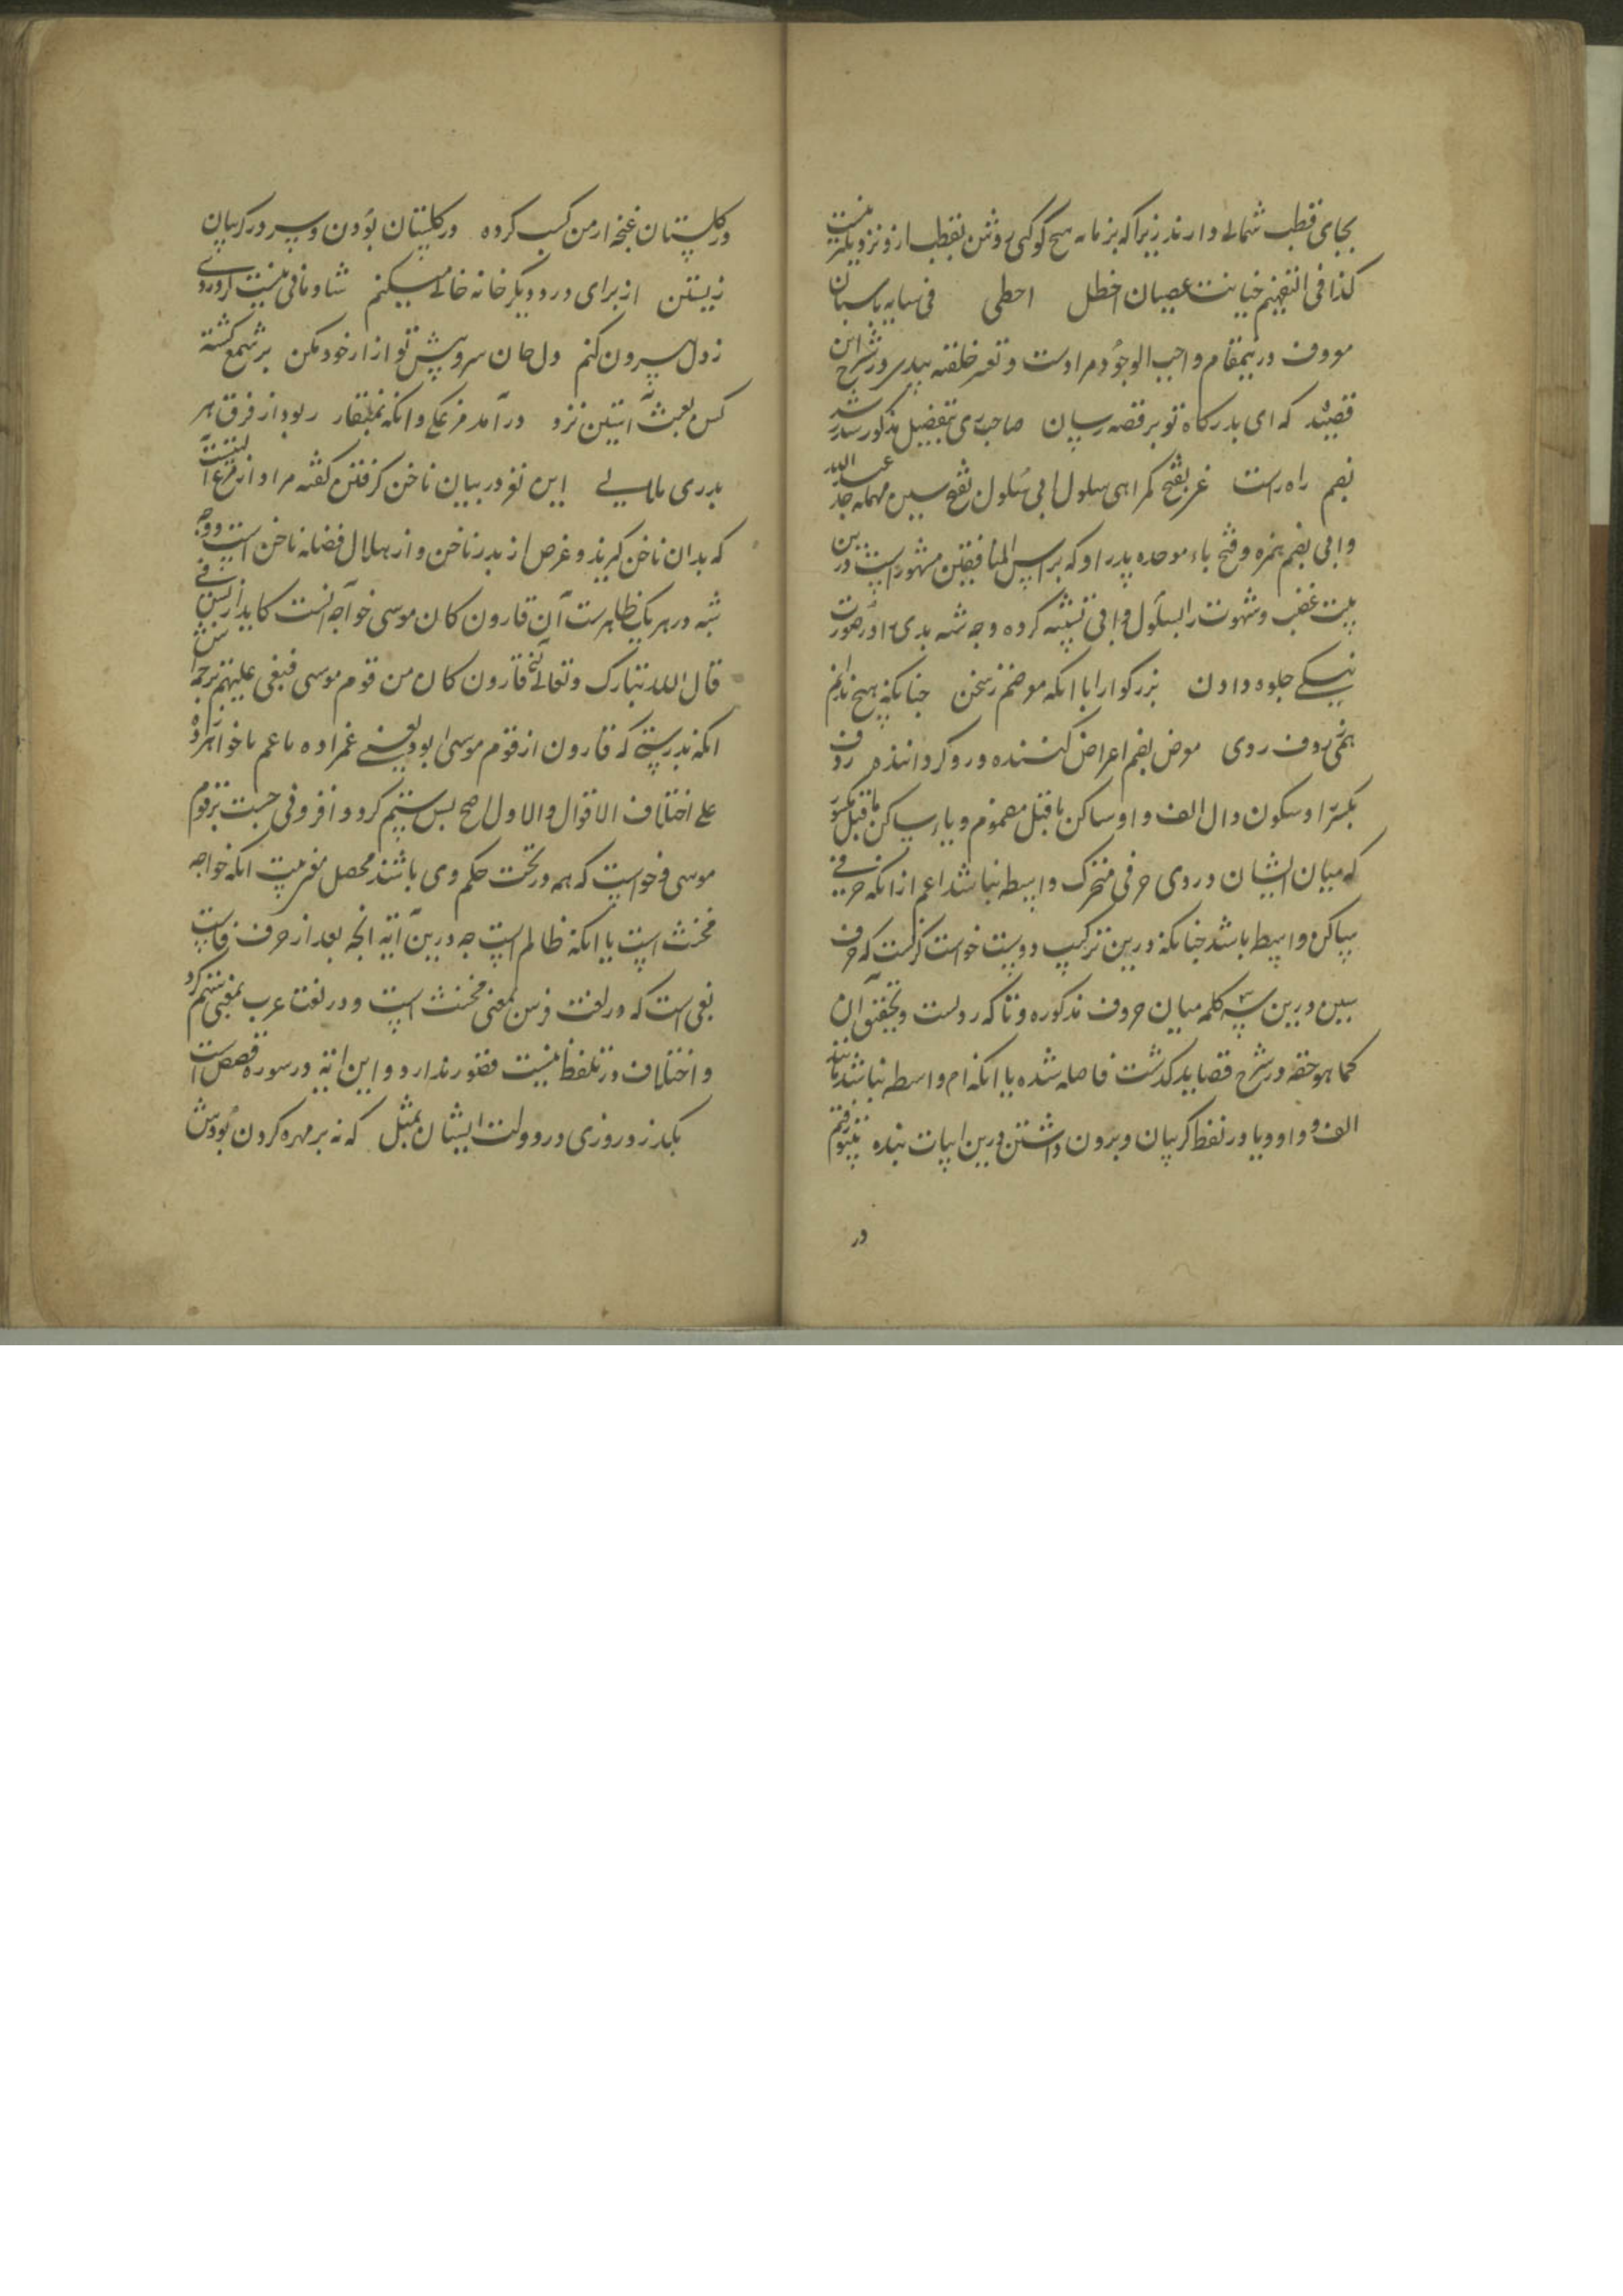 بجای قطب شمالی دارند زیرا که بزمانه هیچ کوکبی روشن بقطب ازو نزدیکتر نیست
کذا فی التفهیم خیانت عصیان اخطل احطی فی سایه باسبان
درینمقام واجب الوجود مراد است و در شرح این
قصیده که ای بدرکاه تو بر قصه رسان صاحب ری بتفضیل مذکور شد
بضم راه راست بفتح کمراهی سلول ابی سلول بفتح سین مهمله جد عبد الله
و ابی بضم همزه و فتح باء موحده پدر او که براس المنافقین مشهور است درین
بیت غضب و شهوت را بسلول و ابی تشبیه کرده وجه شبه بدی را در صورت
نیکی جلوه دادن بزرکوارا با انکه معرضم ز سخن چنانکه هیچ ندانم
همی ردف روی معرض بضم اعراض کننده و رو کرداننده ردف
بکسر را و سکون دال الف و واو ساکن ماقبل مضموم و یاء ساکن ماقبل مکسور
که میان ایشان و روی حرفی متحرک واسطه نباشد اعم از انکه حرفی
ساکن واسطه باشد چنانکه درین ترکیب دوست خواست کریست که حرف
سین درین سه کلمه میان حروف مذکوره و تا که رویست و تحقیق آن
کما هو حقه در شرح قصاید کذشت فاصله شده یا انکه ام واسطه نباشد مانند
الف و واو و یا در لفظ کریبان و برون داشتن درین ابیات بنده
در
در کلستان غنچه از من کسب کرده در کلستان بودن و سر در کریبان
زیستن از برای درد دیکر خانه خالی میکنم شادمانی نیست کر دردی
ز دل بیرون کنم دل جان سر و پیش تو از ار خود مکن بر شمع کشته
کس بعبث آستین نزد درآمد مرغکی وانکه بمنقار ربود از فرق هر
بدری هلالی این لغز در بیان ناخن کرفتن کفته مراد از مرغ آلتیست
که بدان ناخن کیرند و غرض از بدر ناخن و از هلال فضله ناخن است و وجه
شبه در هر یک ظاهرست آن قارون کان موسی خواجه آنست کاید از پس
قال الله تبارک و تعالی ان قارون کان من قوم موسی فبغی علیهم ترجمه اش
انکه بدرستی که قارون از قوم موسی بود یعنی عمزاده یا عم یا خواهرزاده
علی اختلاف الاقوال و الاول اصح بس ستم کرد و افزونی جست بر قوم
موسی و خواست که همه در تحت حکم وی باشند محصل مغز بیت انکه خواجه
مخنث است یا انکه ظالم است چه درین آیه انچه بعد از حرف فاست
بغی است که در لغت فرس بمعنی مخنث است و در لغت عرب بمعنی ستم کرد
و اختلاف در تلفظ نیست قصور ندارد و این آیه در سوره قصص است
بکذرد روزی دو دولت ایشان بمثل که نه بر مهره کردن بودش